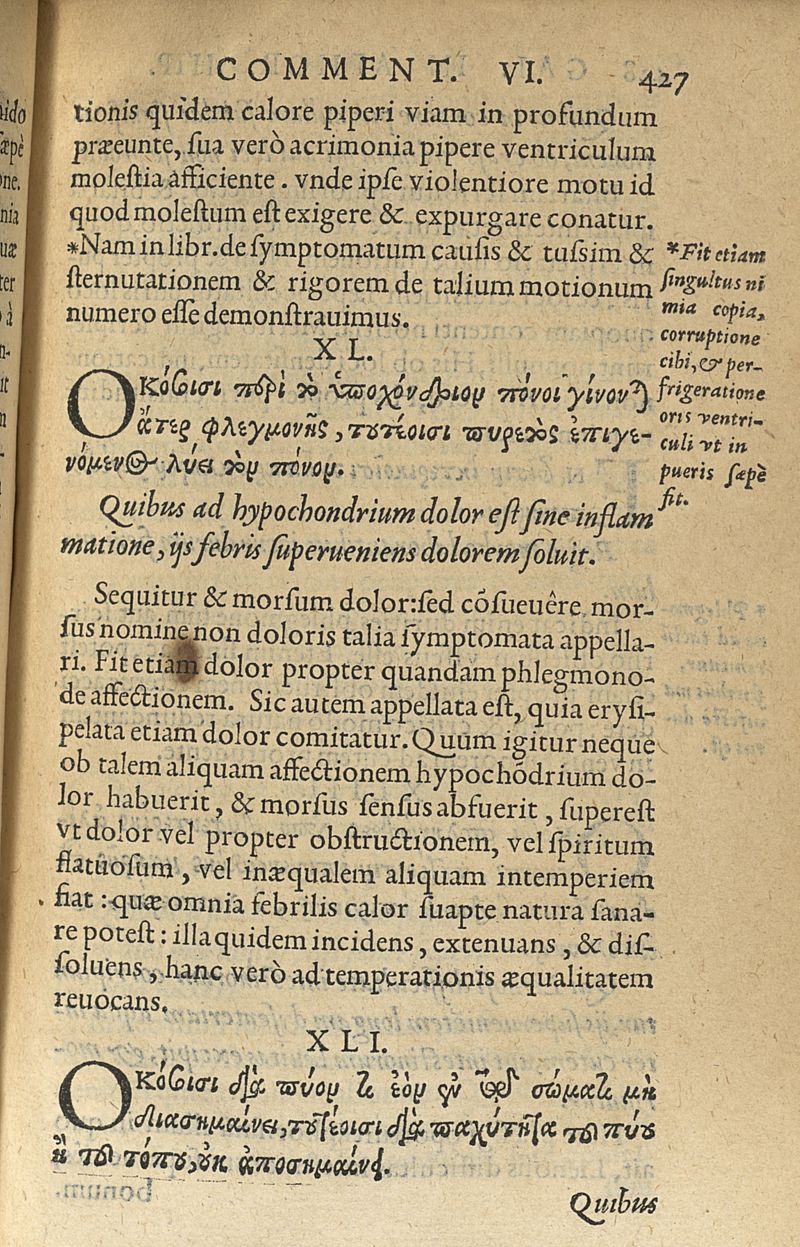 COMMENT. VI. 427
tionis quidem calore piperi viam in profundum
præeunte, sua verò acrimonia pipere ventriculum
molestia afficiente. vnde ipse violentiore motu id
quod molestum est exigere & expurgare conatur.
*Nam in libr. de symptomatum causis & tussim &
sternutationem & rigorem de talium motionum
numero esse demonstrauimus.
*Fit etiam
singultus ni
mia copia,
corruptione
cibi, & per-
frigeratione
oris ventri-
culi vt in
pueris sæpè
fit.
XL.
Ὁκόσοισι περὶ τὸ ὑποχόνδριον πόνοι γίνονται
ἄτερ φλεγμονῆς, τουτέοισι πυρετὸς ἐπιγε-
νόμενος λύει τὸν πόνον.
Quibus ad hypochondrium dolor est sine inflam
matione, ijs febris superueniens dolorem soluit.
Sequitur & morsum dolor: sed cõsueuêre mor-
sus nomine non doloris talia symptomata appella-
ri. Fit etiam dolor propter quandam phlegmono-
de affectionem. Sic autem appellata est, quia erysi-
pelata etiam dolor comitatur. Quum igitur neque
ob talem aliquam affectionem hypochõdrium do-
lor habuerit, & morsus sensus abfuerit, superest
vt dolor vel propter obstructionem, vel spiritum
flatuosum, vel inæqualem aliquam intemperiem
fiat: quæ omnia febrilis calor suapte natura sana-
re potest: illa quidem incidens, extenuans, & dis-
soluens, hanc verò ad temperationis æqualitatem
reuocans.
XLI.
Ὁκόσοισι διάπυόν τι ἐὸν ἐν τῷ σώματι μὴ
διασημαίνει, τουτέοισι διὰ παχύτητα τοῦ πύου
ἢ τοῦ τόπου, οὐκ ἀποσημαίνει.
Quibus